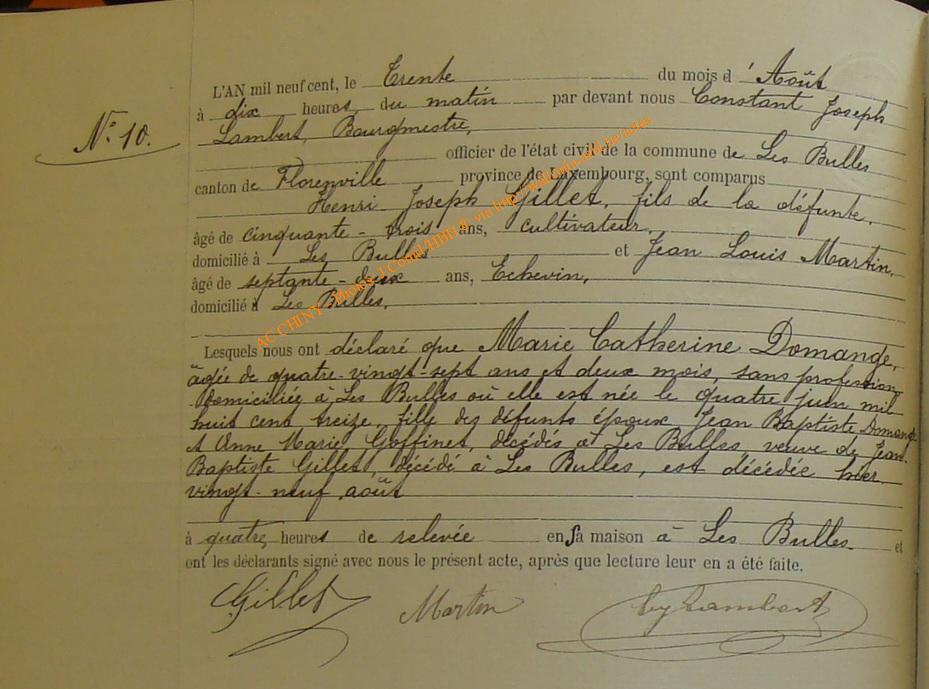 L'AN mil neuf cent, le Trente du mois d'Août
à dix heures du matin par devant nous Constant Joseph
Nº 10.
Lambert, Bourgmestre,
officier de l'état civil de la commune de Les Bulles
canton de Florenville province de Luxembourg, sont comparus
Henri Joseph Gillet, fils de la défunte,
âgé de cinquante-trois ans, cultivateur,
domicilié à Les Bulles et Jean Louis Martin,
âgé de septante-deux ans, Echevin,
domicilié à Les Bulles,
Lesquels nous ont déclaré que Marie Catherine Domange,
âgée de quatre-vingt-sept ans et deux mois, sans profession
domiciliée à Les Bulles où elle est née le quatre juin mil
huit cent treize, fille des défunts époux Jean Baptiste Domange
et Anne Marie Goffinet, décédés à Les Bulles, veuve de Jean-
Baptiste Gillet, décédé à Les Bulles, est décédée hier
vingt-neuf août
à quatre heures de relevée en sa maison à Les Bulles et
ont les déclarants signé avec nous le présent acte, après que lecture leur en a été faite.
Gillet Martin Lambert
AC CHINY - Photo's J.Cornil-HBH © via